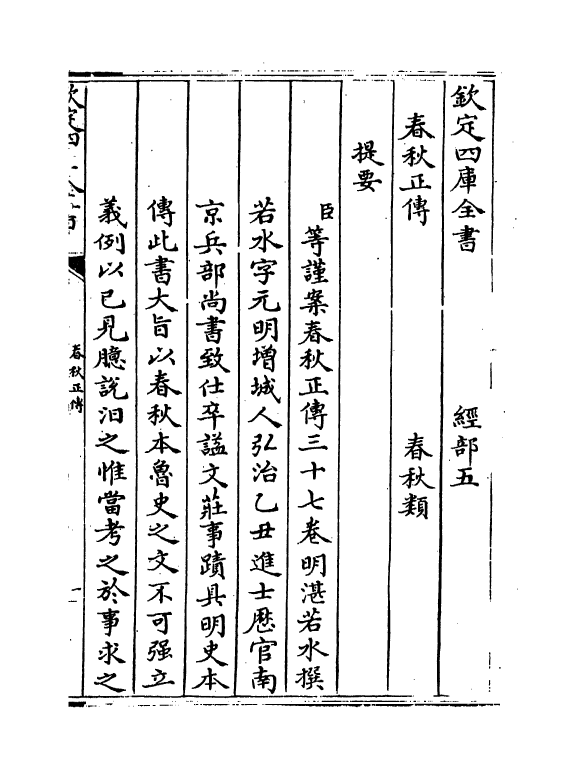 欽定四庫全書　經部五
春秋正傳　春秋類
提要
臣等謹案春秋正傳三十七卷明湛若水撰
若水字元明增城人弘治乙丑進士歴官南
京兵部尚書致仕卒謚文莊事蹟具明史本
傳此書大旨以春秋本魯史之文不可强立
義例以已見臆說汩之惟當考之於事求之
欽定四庫全書
春秋正傳
一